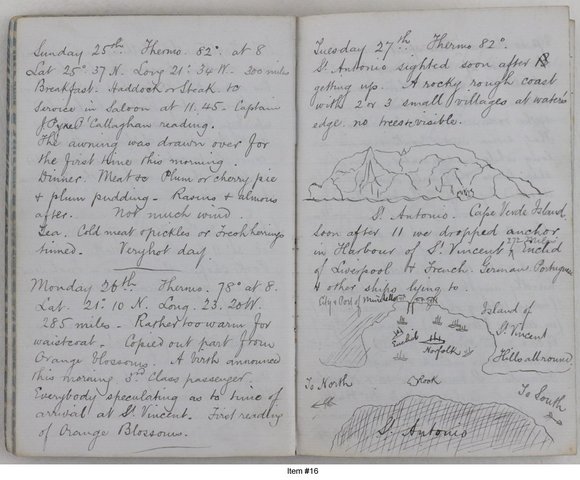 Sunday 25th. Thermo. 82°. at 8
Lat 25° 37 N. Long 21° 34 W. 300 miles
Breakfast. Haddock or Steak to
Service in Saloon at 11.45. Captain
J. O'Callaghan reading.
The awning was drawn over for
the first time this morning.
Dinner. Meat &c Plum or cherry pie
& plum pudding - Rasins & almons
after. Not much wind.
Tea. Cold meat & pickles or Fresh herrings
tinned. Very hot day.
Monday 26th Thermo. 78° at 8.
Lat. 21° 10 N. Long. 23. 20 W.
285 miles - Rather too warm for
waistcoat - Copied out part from
Orange Blossoms. A birth announced
this morning 3rd Class passenger.
Everybody speculating as to time of
arrival at St. Vincent. First reading
of Orange Blossoms.
Tuesday 27th. Thermo 82°.
St. Antonio sighted soon after
getting up. A rocky rough coast
with 2 or 3 small villages at waters
edge. no trees visible.
St. Antonio. Cape Verde Island.
Soon after 11 we dropped anchor
in Harbour of St. Vincent
of Liverpool & French German Portuguese
& other ships lying to.
City & Port of
Island of
St. Vincent
Hills all round
Euclid
Norfolk
Rock
To North
To South
St. Antonio
Item #16